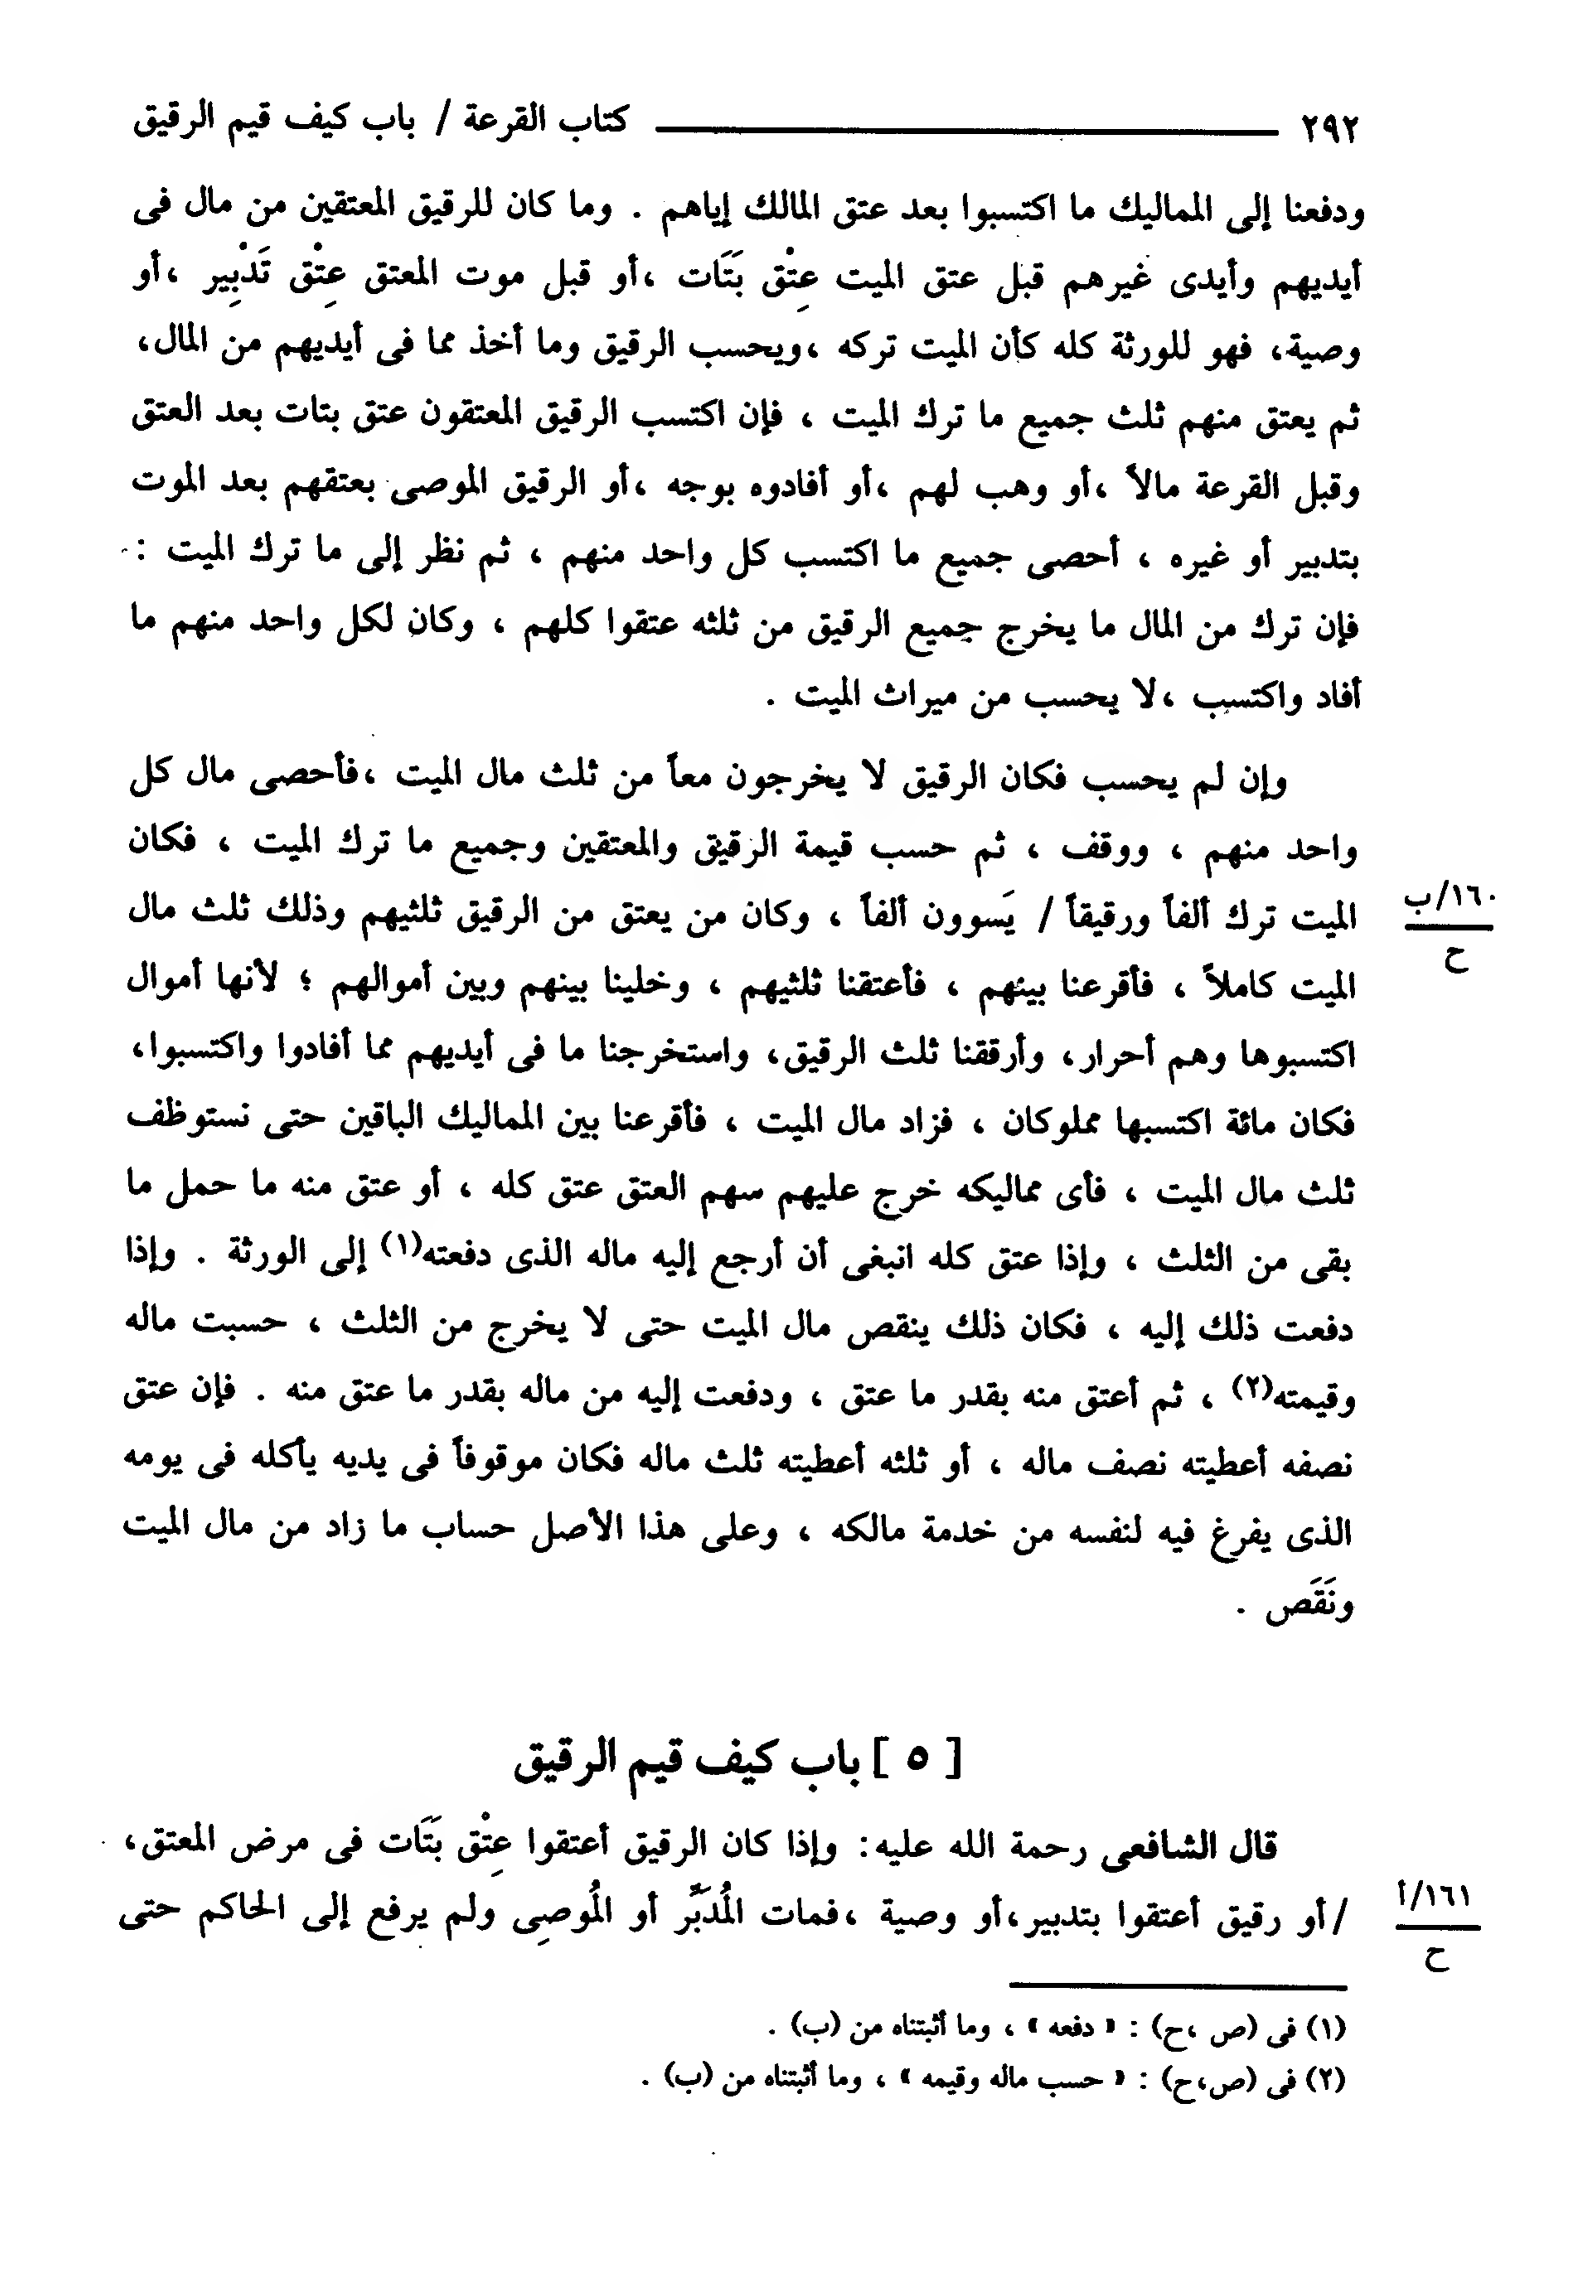 ٢٩٢ كتاب القرعة / باب كيف قيم الرقيق
ودفعنا إلى المماليك ما اكتسبوا بعد عتق المالك إياهم . وما كان للرقيق المعتقين من مال فى
أيديهم وأيدى غيرهم قبل عتق الميت عِتْق بَتَات ،أو قبل موت المعتق عِتْق تَدْبِير ،أو
وصية، فهو للورثة كله كأن الميت تركه ،ويحسب الرقيق وما أخذ مما فى أيديهم من المال،
ثم يعتق منهم ثلث جميع ما ترك الميت ، فإن اكتسب الرقيق المعتقون عتق بتات بعد العتق
وقبل القرعة مالاً ،أو وهب لهم ،أو أفادوه بوجه ،أو الرقيق الموصى بعتقهم بعد الموت
بتدبير أو غيره ، أحصى جميع ما اكتسب كل واحد منهم ، ثم نظر إلى ما ترك الميت :
فإن ترك من المال ما يخرج جميع الرقيق من ثلثه عتقوا كلهم ، وكان لكل واحد منهم ما
أفاد واكتسب ،لا يحسب من ميراث الميت .
وإن لم يحسب فكان الرقيق لا يخرجون معاً من ثلث مال الميت ،فأحصى مال كل
واحد منهم ، ووقف ، ثم حسب قيمة الرقيق والمعتقين وجميع ما ترك الميت ، فكان
الميت ترك ألفاً ورقيقاً / يَسوون ألفاً ، وكان من يعتق من الرقيق ثلثيهم وذلك ثلث مال
١٦٠/ب
ح
الميت كاملاً ، فأقرعنا بينهم ، فأعتقنا ثلثيهم ، وخلينا بينهم وبين أموالهم ؛ لأنها أموال
اكتسبوها وهم أحرار، وأرققنا ثلث الرقيق، واستخرجنا ما فى أيديهم مما أفادوا واكتسبوا،
فكان مائة اكتسبها مملوكان ، فزاد مال الميت ، فأقرعنا بين المماليك الباقين حتى نستوظف
ثلث مال الميت ، فأى مماليكه خرج عليهم سهم العتق عتق كله ، أو عتق منه ما حمل ما
بقى من الثلث ، وإذا عتق كله انبغى أن أرجع إليه ماله الذى دفعته(١) إلى الورثة . وإذا
دفعت ذلك إليه ، فكان ذلك ينقص مال الميت حتى لا يخرج من الثلث ، حسبت ماله
وقيمته(٢) ، ثم أعتق منه بقدر ما عتق ، ودفعت إليه من ماله بقدر ما عتق منه . فإن عتق
نصفه أعطيته نصف ماله ، أو ثلثه أعطيته ثلث ماله فكان موقوفاً فى يديه يأكله فى يومه
الذى يفرغ فيه لنفسه من خدمة مالكه ، وعلى هذا الأصل حساب ما زاد من مال الميت
ونَقَص .
[ ٥ ] باب كيف قيم الرقيق
قال الشافعى رحمة الله عليه: وإذا كان الرقيق أعتقوا عِتْق بَتَات فى مرض المعتق،
/أو رقيق أعتقوا بتدبير،أو وصية ،فمات المُدَبِّر أو المُوصِى ولم يرفع إلى الحاكم حتى
١٦١/أ
ح
(١) فى (ص ،ح) : « دفعه » ، وما أثبتناه من (ب) .
(٢) فى (ص،ح) : « حسب ماله وقيمه » ، وما أثبتناه من (ب) .